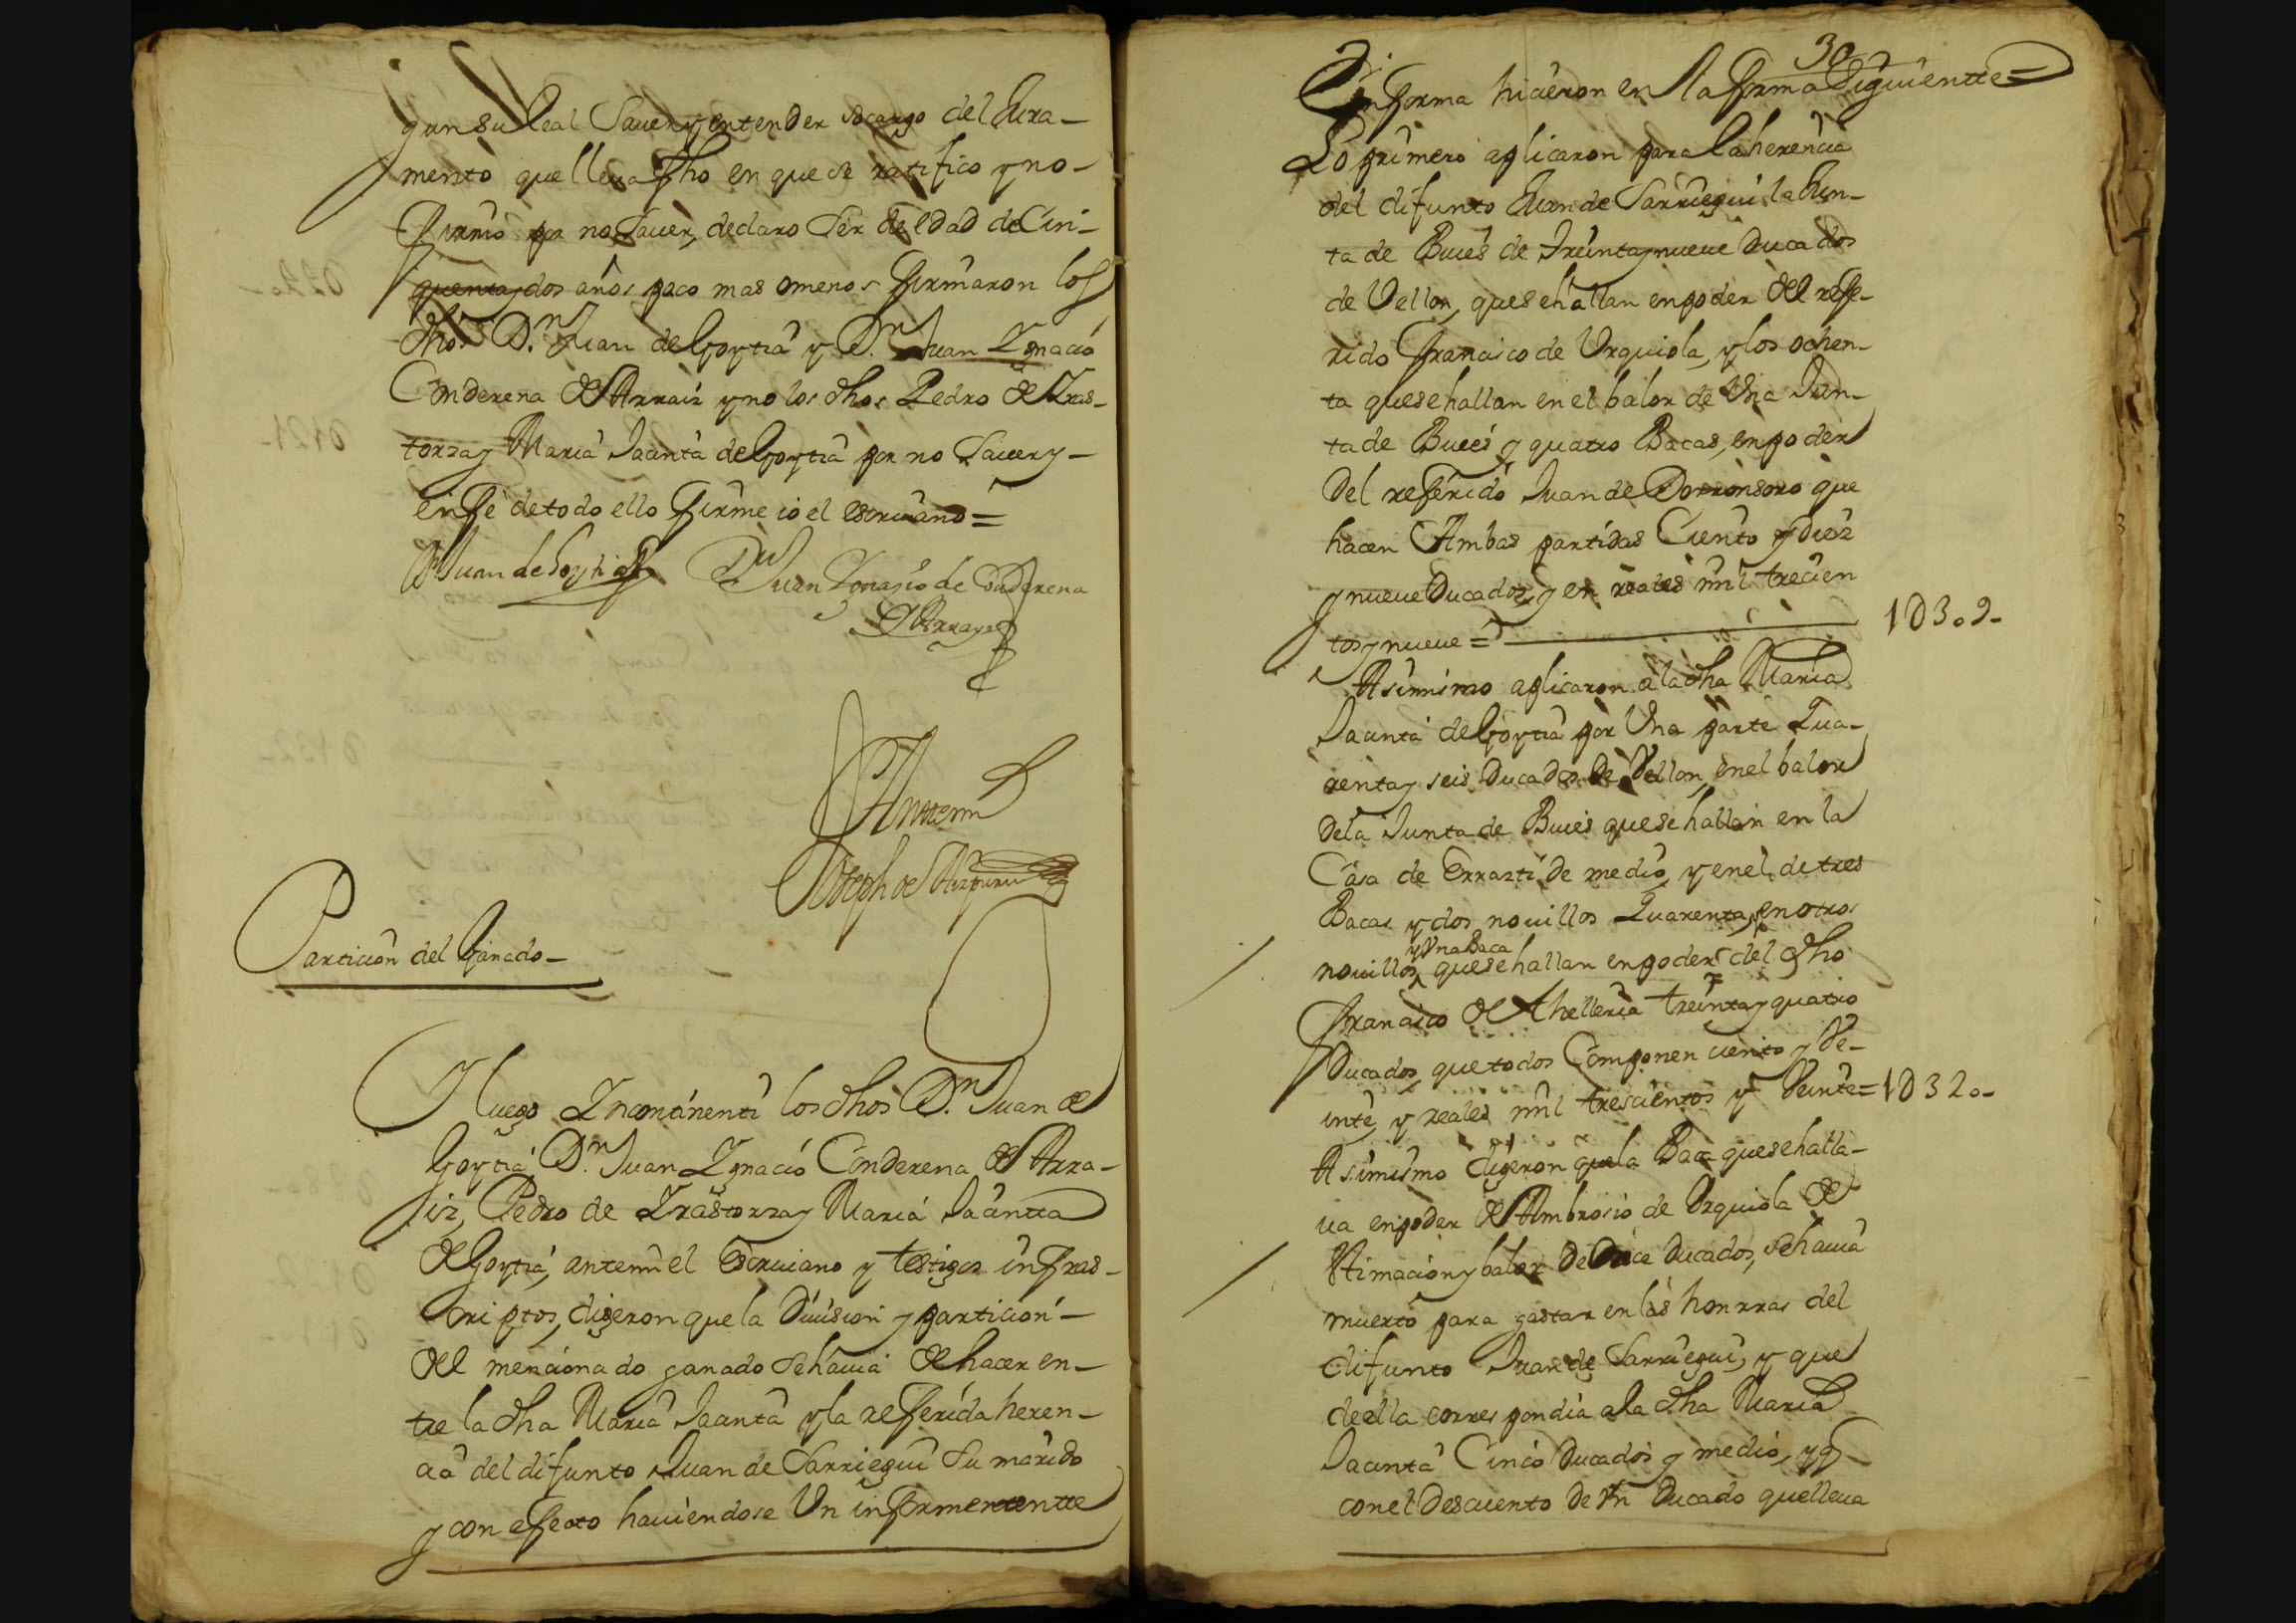 y en su leal Saver y entender so cargo del Jura-
mento que lleva dho en que se ratifico y no-
firmò por no Saver, declaro Ser de edad de Cin-
quenta y dos años poco mas o menos firmaron los
dhos D.n Juan de Goytia y D.n Juan Ygnacio
Conderena de Arraiz y no los dhos Pedro de Yras-
torza y Maria Jacinta de Goytia por no Saver y-
en fe de todo ello firme io el escriuano =
D.n Juan de Goytia D.n Juan Ygnazio de Conderena
de Arrayz
Antemi
Joseph de Aizpuru
Particion del Ganado-
Y luego Yncontinenti los dhos D.n Juan de
Goytia, D.n Juan Ygnacio Conderena de Arra-
iz, Pedro de Yrastorza y Maria Jacinta
de Goytia, antemi el Escriuano y testigos infras-
criptos, digeron que la Diuision y particion-
del mencionado ganado se hauia de hacer en-
tre la dha Maria Jacinta y la referida heren-
cia del difunto Juan de Sarriegui Su marido
y con efecto hauiendose Un informemente
30
Conforma hicieron en la forma Siguiente=
Lo primero aplicaron para la herencia
del difunto Juan de Sarriegui la Jun-
ta de Bueis de treinta y nueue Ducados
de Vellon, que se hallan en poder del refe-
rido Francisco de Urquiola, y los ochen-
ta que se hallan en el balor de Una Jun-
ta de Bueis y quatro Bacas, en poder
del referido Juan de Dorronsoro que
hacen Ambas partidas Ciento y diez
y nueue Ducados, y en reales mil trecien
tos y nueue = 1D309-
Asimismo aplicaron a la dha Maria
Jacinta de Goytia por Una parte Qua-
renta y seis Ducados de Vellon, en el balor
de la Junta de Bueis que se hallan en la
Casa de Errazti de medio, y en el de tres
Bacas y dos nouillos Quarenta, y en otros
y Una Baca
nouillos, que se hallan en poder del dho
Francisco de Thelleria treinta y quatro
Ducados, que todos Componen ciento y Ve-
inte, y reales mil trescientos y Veinte= 1D320-
Asimismo digeron que la Baca que se halla-
ua en poder de Ambrosio de Urquiola de
Stimacion y balor de Once Ducados, se hauia
muerto para gastar en las honrras del
difunto Juan de Sarriegui, y que
de ella correspondia a la dha Maria
Jacinta Cinco Ducados y medio, y q
con el Descuento de Un Ducado que lleua